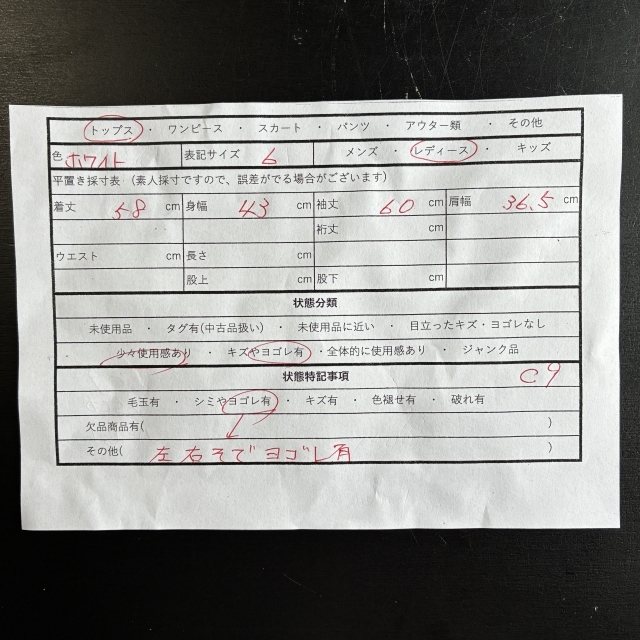 トップス ・ ワンピース ・ スカート ・ パンツ ・ アウター類 ・ その他
色 ホワイト 表記サイズ 6 メンズ ・ レディース ・ キッズ
平置き採寸表 (素人採寸ですので、誤差がでる場合がございます)
着丈 58 cm 身幅 43 cm 袖丈 60 cm 肩幅 36.5 cm
裄丈 cm
ウエスト cm 長さ cm
股上 cm 股下 cm
状態分類
未使用品 ・ タグ有(中古品扱い) ・ 未使用品に近い ・ 目立ったキズ・ヨゴレなし
・ 少々使用感あり ・ キズやヨゴレ有 ・全体的に使用感あり ・ ジャンク品
状態特記事項 C9
毛玉有 ・ シミやヨゴレ有 ・ キズ有 ・ 色褪せ有 ・ 破れ有
欠品商品有( )
その他( 左右そでヨゴレ有 )